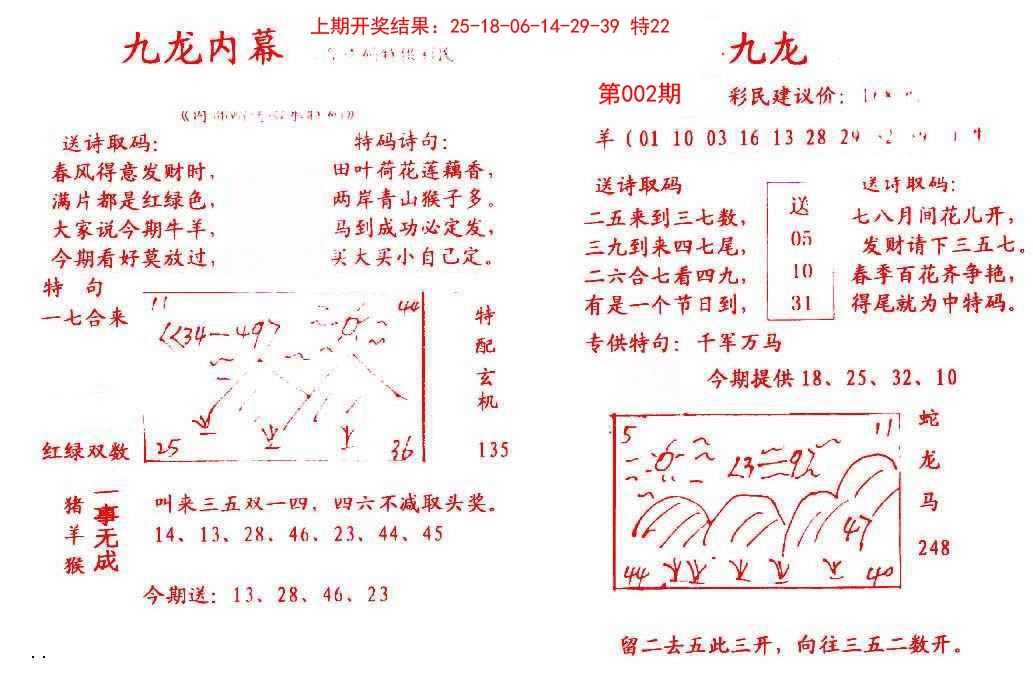 上期开奖结果：25-18-06-14-29-39 特22
九龙内幕
送诗取码：
春风得意发财时，
满片都是红绿色，
大家说今期牛羊，
今期看好莫放过，
特码诗句：
田叶荷花莲藕香，
两岸青山猴子多。
马到成功必定发，
买大买小自己定。
特 句
一七合来
红绿双数
11
44
《34—49》
25
36
特
配
玄
机
135
猪
羊
猴
一事无成
叫来三五双一四，四六不减取头奖。
14、13、28、46、23、44、45
今期送：13、28、46、23
九龙
第002期
彩民建议价：
羊（01 10 03 16 13 28 29
送诗取码
二五来到三七数，
三九到来四七尾，
二六合七看四九，
有是一个节日到，
送
05
10
31
送诗取码：
七八月间花儿开，
发财请下三五七。
春季百花齐争艳，
得尾就为中特码。
专供特句：千军万马
今期提供18、25、32、10
5
11
47
44
40
蛇
龙
马
248
留二去五此三开，向往三五二数开。